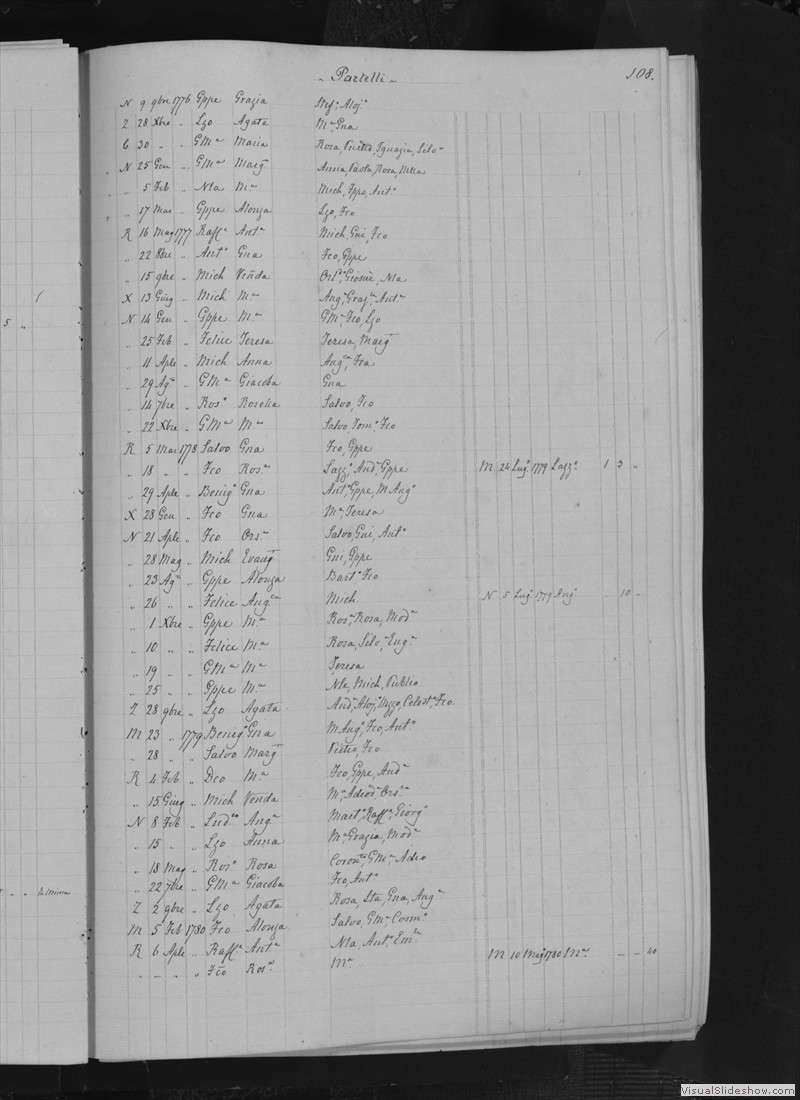 Partelli 108.
N 9 9bre 1776 Gppe Grazia Stef.o Aloj.o
Z 28 Xbre „ Lzo Agata M.a Gna
C 30 „ „ GMa Maria Rosa, Pietro, Ignazia, Silv.a
N 25 Gen „ GMa Marg Anna, Paola, Rosa,
„ 5 Feb „ Nla M.a Mich, Fppo, Ant.o
„ 17 Mar „ Gppe Alonza Lzo, Fco
R 16 Mag 1777 Raff.e Ant.a Mich, Gni, Fco
„ 22 8bre „ Ant.o Gna Fco, Gppe
„ 15 9bre „ Mich Venda Giosuè, Nla
X 13 Giug „ Mich M.a Ang.a Graz.a Ant.a
N 14 Gen „ Gppe M.a GMa, Fco, Lzo
„ 25 Feb „ Felice Teresa Teresa, Marg
„ 11 Aple „ Mich Anna Ang.ca, Fca
„ 29 Ag.o „ GMa Giacoba Gna
„ 14 7bre „ Ros.o Rorelia Salvo, Fco
„ 22 Xbre „ GMa M.a Salvo, Tom.o Fco
R 5 Mar 1778 Salvo Gna Fco, Gppe
„ 18 „ „ Fco Ros.a Lazz.o And.a Gppe M 24 Lug.o 1779 Lazz.o 1 3 „
„ 29 Aple „ Benig.o Gna Ant.o Gppe, M Ang.o
X 28 Gen „ Fco Gna M.a Teresa
N 21 Aple „ Fco Ors.a Salvo, Gni, Ant.o
„ 28 Mag „ Mich Evang Gni, Gppe
„ 23 Ag.o „ Gppe Alonza Bart.o Fco
„ 26 „ „ Felice Ang.ca Mich. N 5 Lug.o 1779 Ang.o „ 10 „
„ 1 Xbre „ Gppe M.a Ros.a Rosa, Mod.a
„ 10 „ „ Felice M.a Rosa, Silv.a Eug.a
„ 19 „ „ GMa M.a Teresa
„ 25 „ „ Gppe M.a Nla, Mich, Publio
Z 28 9bre „ Lzo Agata And.a Aloj.o Celest.o Fco
M 23 „ 1779 Benig.o Gna M Ang.o Fco, Ant.o
„ 28 „ „ Salvo Marg Pietro, Fco
R 4 Feb „ Dco M.a Fco, Gppe, And.a
„ 15 Giug „ Mich Venda M.a Adeod.a Ors.a
N 8 Feb „ Lud.co Ang.a Mart.o Raff.e Giorg.o
„ 15 „ „ Lzo Anna M.a Grazia, Mod.a
„ 18 Mag „ Ros.o Rosa Coron.ta GMa
„ 22 7bre „ GMa Giacoba Fco, Ant.o
Z 2 9bre „ Lzo Agata Rosa, Sta, Gna, Ang.a
M 5 Feb 1780 Fco Alonza Salvo, GMa Cosm.o
R 6 Aple „ Raff.e Ant.a Nla, Ant.o Em.le
„ „ „ „ Fco Ros.a M.a M 10 Mag 1780 M.a „ „ 40
5 „
VisualSlideshow.com